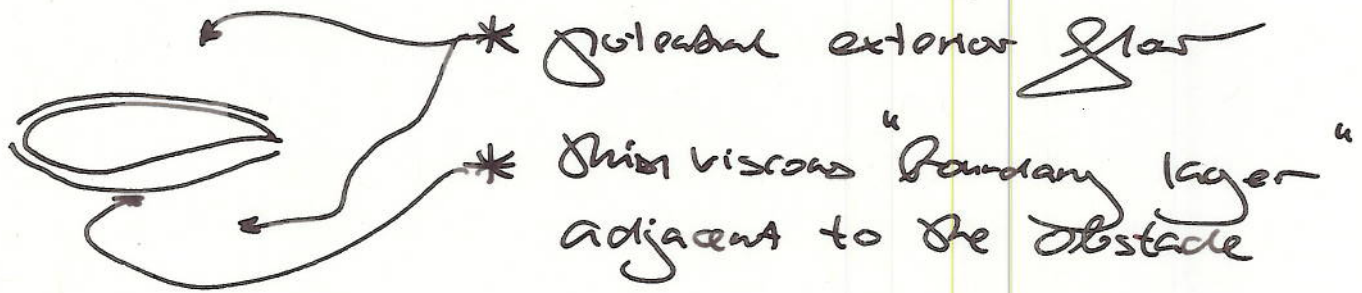 * potential exterior flow
* thin viscous "boundary layer"
adjacent to the obstacle